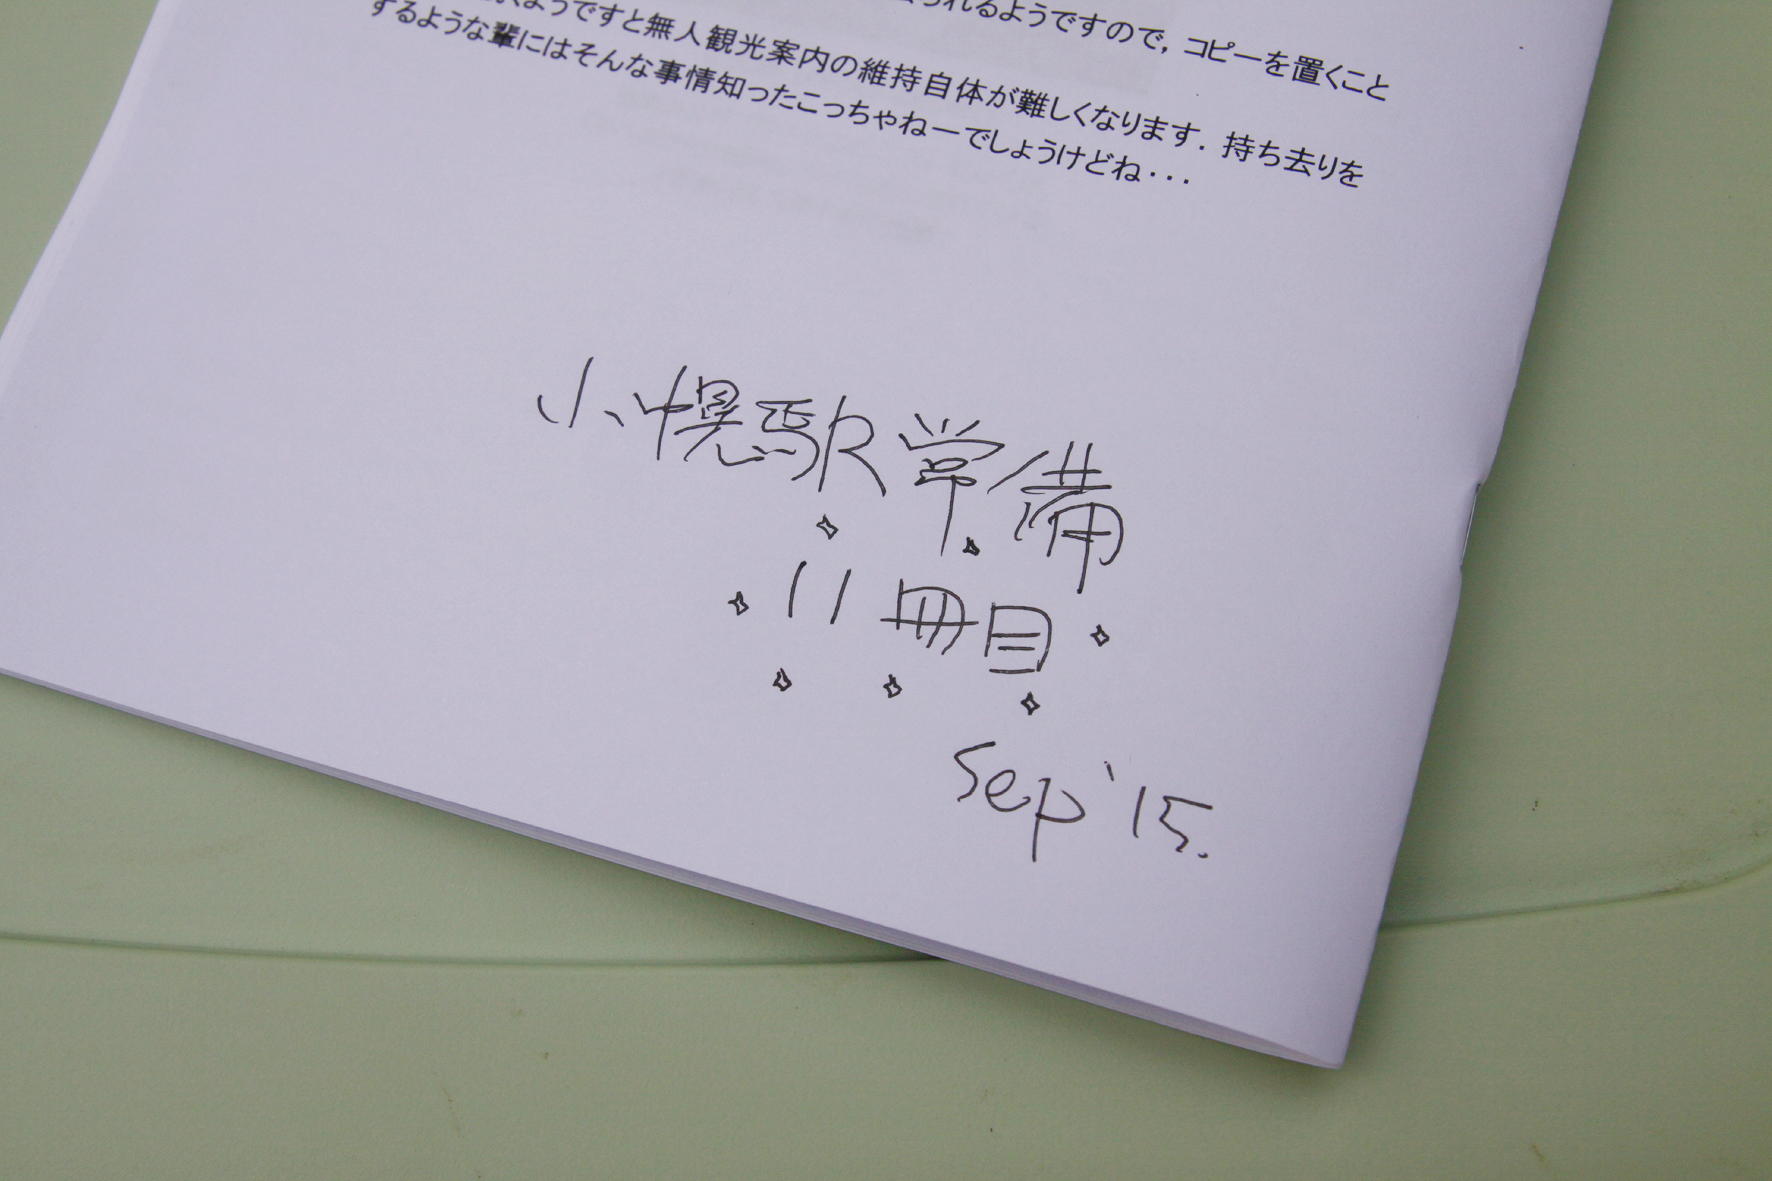 られるようですので，コピーを置くこと
ようですと無人観光案内の維持自体が難しくなります．持ち去りを
するような輩にはそんな事情知ったこっちゃねーでしょうけどね・・・
小幌駅常備
11冊目
Sep '15.